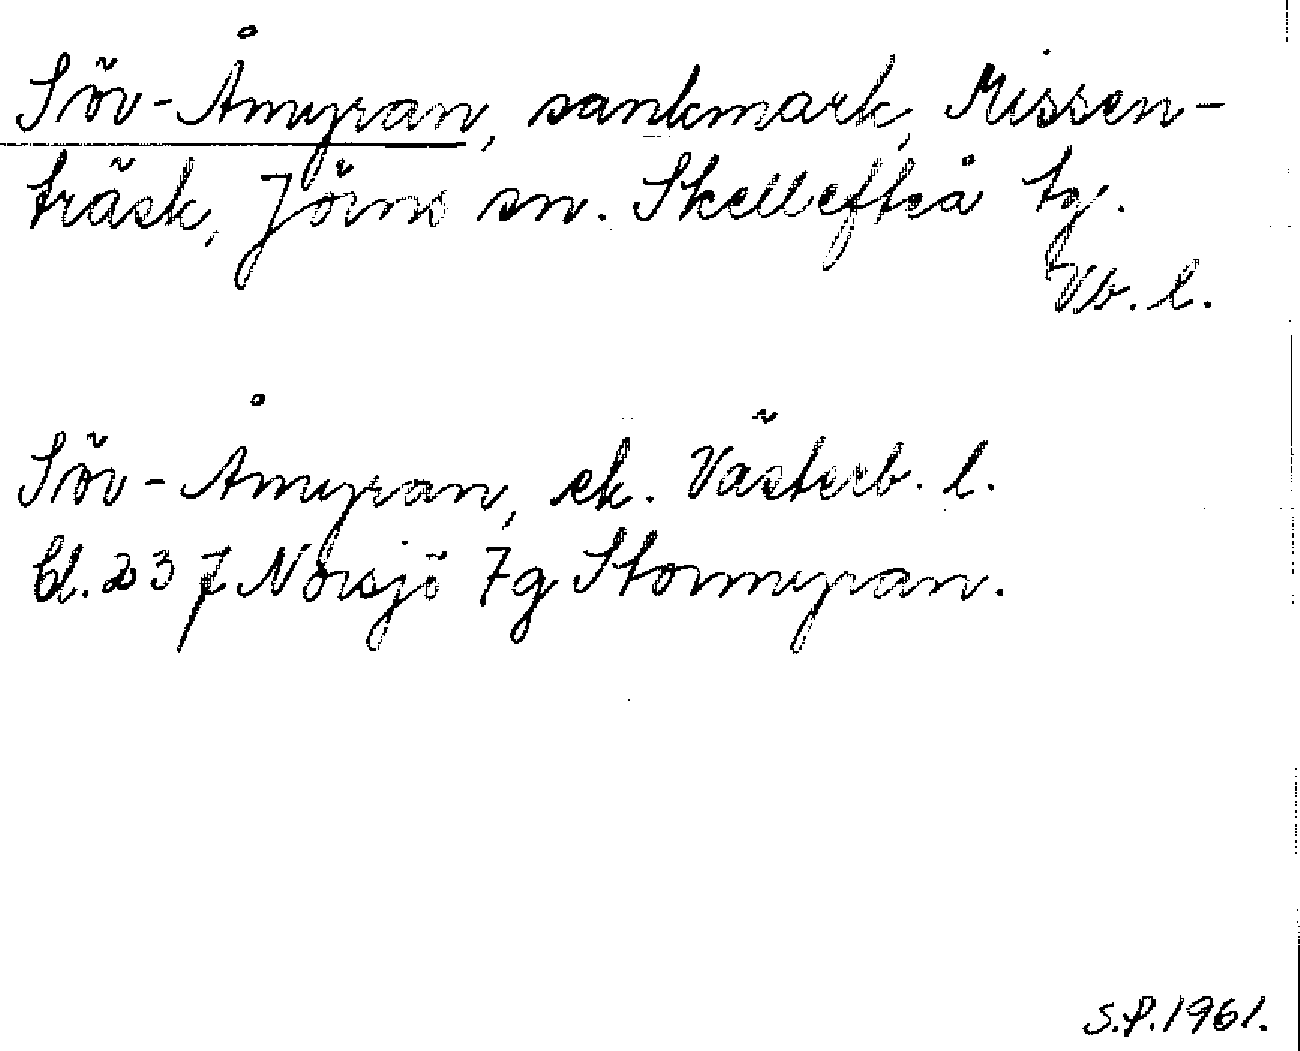 Söv-Åmyran, sankmark, Missen-
träsk, Jörns sn. Skellefteå tg.
Vb. l.
Söv-Åmyran, ek. Västerb. l.
bl. 23 J Norsjö 7g Stormyran.
S.P. 1961.